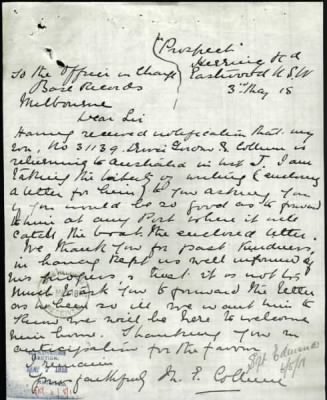 "Prospect"
Herring Rd
Eastwood N.S.W
3rd May 18
To the Officer in Charge
Base Records
Melbourne
Dear Sir
Having received notification that my
son, No 31139
returning to Australia in H.T. I am
taking the liberty of writing & enclosing
a letter for him to you asking you
if you would be so good as to forward
to him at any Port where it will
catch the boat, the enclosed letter.
We thank you for past kindness,
in having kept us well informed of
his progress & trust it is not too
much to ask you to forward this letter
as he is so ill we want him to
know we will be here to welcome
him home. Thanking you in
anticipation for the favour
I remain
yours faithfully M. E.